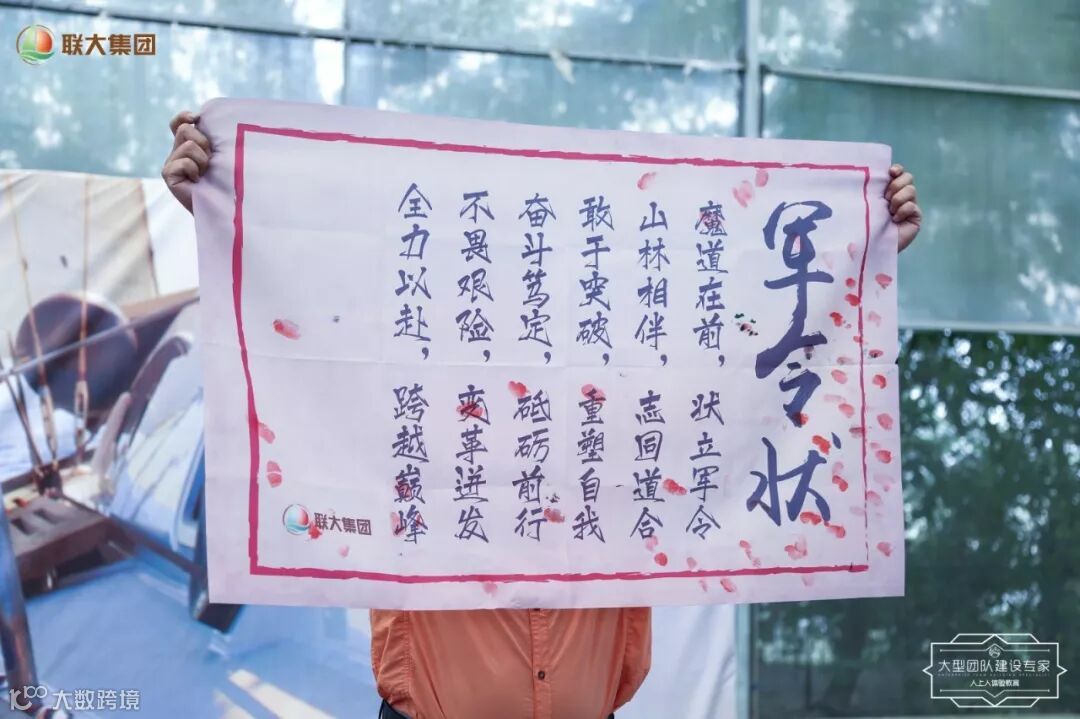 联大集团
军令状
魔道在前，状立军令
山林相伴，志同道合
敢于突破，重塑自我
奋斗笃定，砥砺前行
不畏艰险，变革迸发
全力以赴，跨越巅峰
联大集团
大型团队建设专家
人上人体验教育
大数跨境